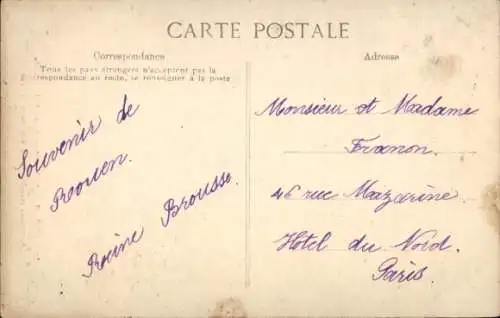 CARTE POSTALE
Correspondance
Tous les pays étrangers n'acceptent pas la
correspondance au recto, se renseigner à la poste
Adresse
Souvenir de
Rouen.
Racine Brousse.
Monsieur et Madame
Franon.
46 rue Mazarine
Hotel du Nord.
Paris.